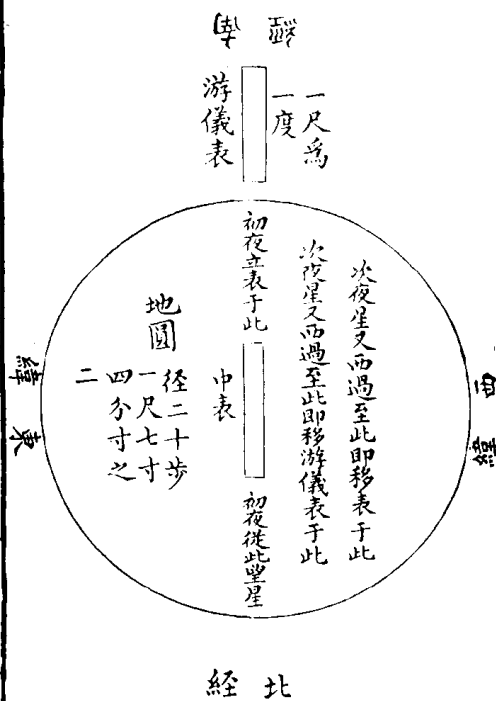 南經
一尺爲
一度
游儀表
西緯
次夜星又西過至此即移表于此
次夜星又西過至此即移游儀表于此
初夜立表于此
中表
初夜從此望星
地圓
径二十步
一尺七寸
四分寸之
二
東緯
北経